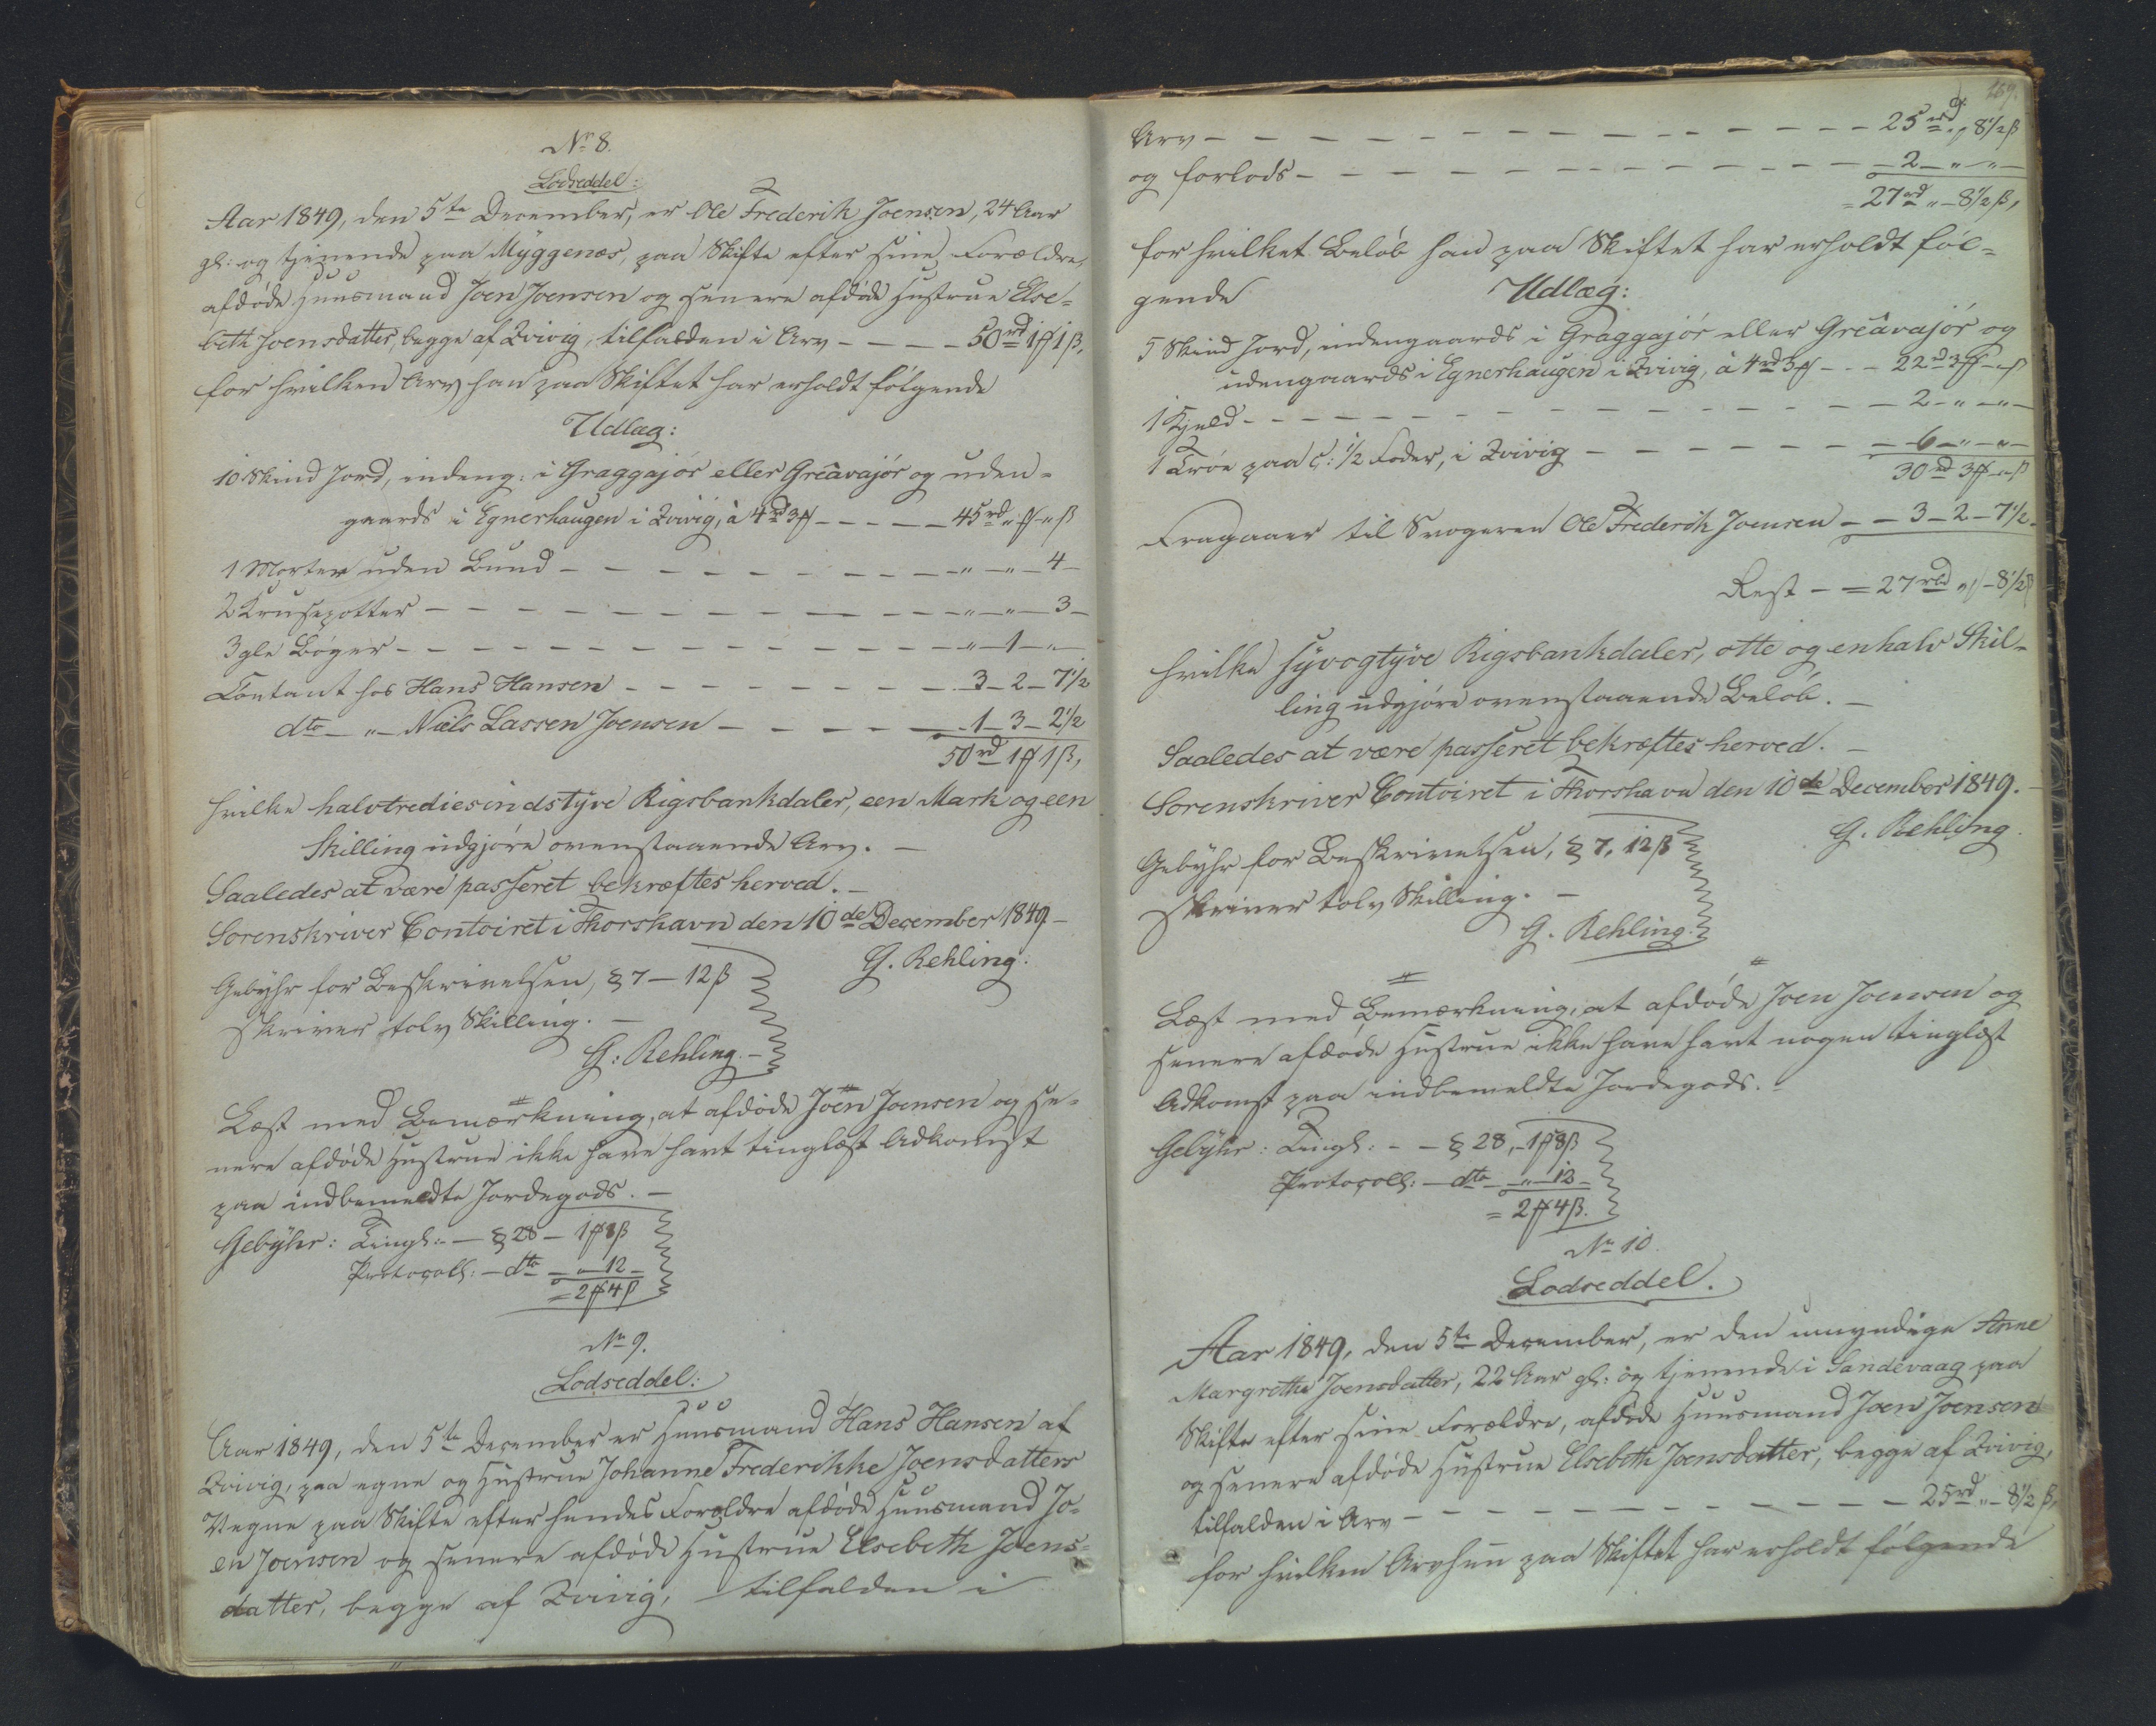 No 8.
Lodseddel:
Aar 1849, den 5te December, er Ole Frederik Joensen, 24 Aar
gl: og tjenende paa Myggenæs, paa Skifte efter sine Forældre,
afdøde Huusmand Joen Joensen og senere afdøde Hustrue Else-
beth Joensdatter, begge af Qvivig, tilfalden i Arv - - - - 50rd 1 ₰ 1 β,
for hvilken Arv han paa Skiftet har erholdt følgende
Udlæg:
10 Skind Jord, indeng: i Graggajør eller Greâvajør og uden-
gaards i Egnerhaugen i Qvivig, à 4rd 3 ₰ - - - - - 45rd " ₰ " β
1 Morter uden Bund - - - - - - - - - - " - " - 4 -
2 Krusepotter - - - - - - - - - - - - - " - " - 3 -
3 gle Bøger - - - - - - - - - - - - - - " - 1 - " -
Contant hos Hans Hansen - - - - - - - - - 3 - 2 - 7½
dto - " - Niels Lassen Joensen - - - - - - 1 - 3 - 2½
50rd 1 ₰ 1 β,
hvilke halvtrediesindstyve Rigsbankdaler, een Mark og een
Skilling udgjøre ovenstaaende Arv. -
Saaledes at være passeret bekræftes herved. -
Sorenskriver Contoiret i Thorshavn den 10de December 1849 -
G. Rehling.
Gebyhr for Beskrivelsen, § 7 - 12 β
skriver tolv Skilling. -
G: Rehling. -
Læst med Bemærkning, at afdøde Joen Joensen og se-
nere afdøde Hustrue ikke have havt tinglæst Adkomst
paa indbemeldte Jordegods. -
Gebyhr: Tingl: - § 28 - 1 ₰ 8 β
Protocoll: - dto - " - 12 -
= 2 ₰ 4 β
No 9.
Lodseddel:
Aar 1849, den 5te December er Huusmand Hans Hansen af
Qvivig, paa egne og Hustrue Johanne Frederikke Joensdatters
Vegne paa Skifte efter hendes Forældre afdøde Huusmand Jo-
en Joensen og senere afdøde Hustrue Elsebeth Joens-
datter, begge af Qvivig, tilfalden i
169.
Arv - - - - - - - - - - - - - - - - 25rd " 8½ β
og forlods - - - - - - - - - - - - - - 2 - " - " -
= 27rd " - 8½ β,
for hvilket Beløb han paa Skiftet har erholdt føl-
gende Udlæg:
5 Skind Jord, indengaards i Graggajør eller Greâvajør og
udengaards i Egnerhaugen i Qvivig, à 4rd 3 ₰ - - - 22rd 3 ₰ - " β
1 Kjeld - - - - - - - - - - - - - - - 2 - " - " -
1 Trøe paa c: ½ Foder, i Qvivig - - - - - - - 6 - " - " -
30rd 3 ₰ - " β
Fragaaer til Svogeren Ole Frederik Joensen - - 3 - 2 - 7½ -
Rest - = 27rbd " ₰ - 8½ β
hvilke syvogtyve Rigsbankdaler, otte og en halv Skil-
ling udgjøre ovenstaaende Beløb. -
Saaledes at være passeret bekræftes herved. -
Sorenskriver Contoiret i Thorshavn den 10de December 1849. -
G. Rehling.
Gebyhr for Beskrivelsen, § 7, 12 β
skriver tolv Skilling. -
G. Rehling.
Læst med Bemærkning, at afdøde Joen Joensen og
senere afdøde Hustrue ikke have havt nogen tinglæst
Adkomst paa indbemeldte Jordegods. -
Gebyhr: Tingl: - - § 28, - 1 ₰ 8 β
Protocoll: - dto - " - 12 -
= 2 ₰ 4 β.
No 10.
Lodseddel.
Aar 1849, den 5te December, er den umyndige Anne
Margrethe Joensdatter, 22 Aar gl: og tjenende i Sandevaag paa
Skifte efter sine Forældre, afdøde Huusmand Joen Joensen
og senere afdøde Hustrue Elsebeth Joensdatter, begge af Qvivig,
tilfalden i Arv - - - - - - - - - - - - 25rd " - 8½ β,
for hvilken Arv hun paa Skiftet har erholdt følgende